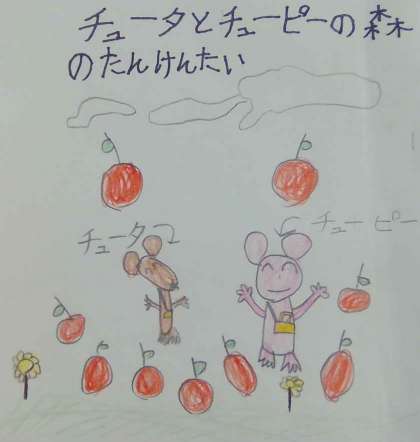 チュータとチューピーの森
のたんけんたい
チュータ
チューピー